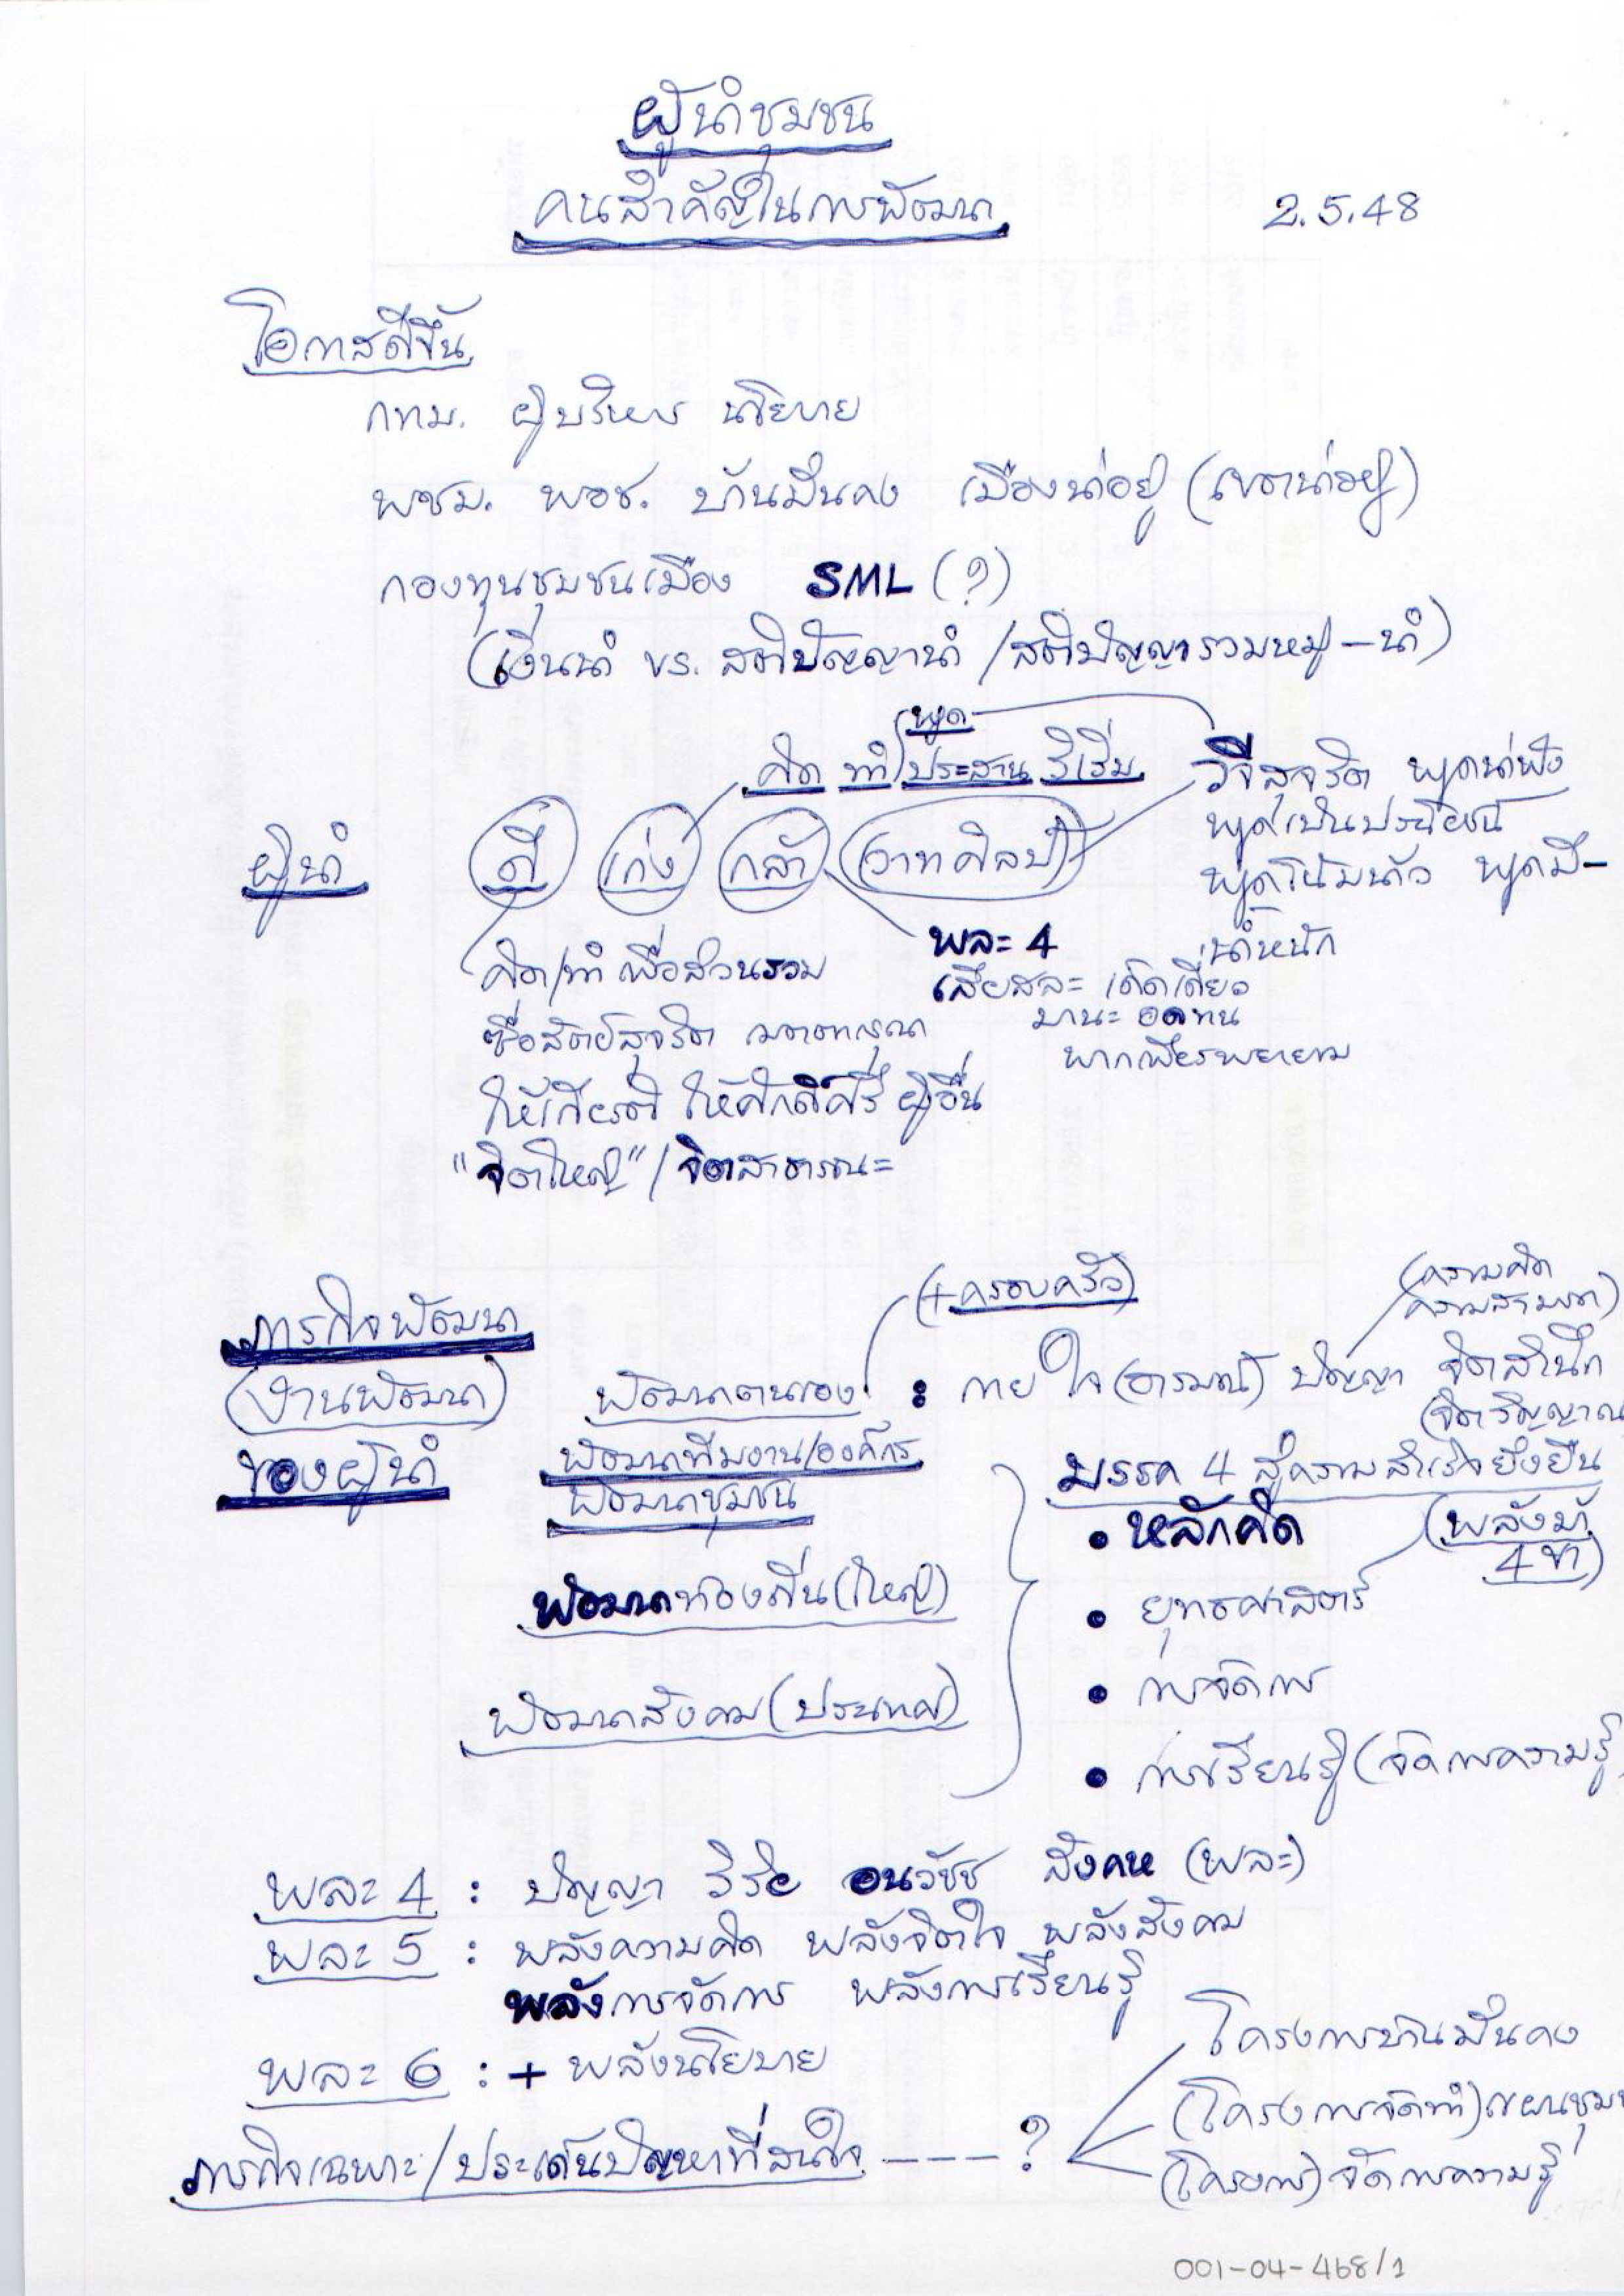 ผู้นำชุมชน
คนสำคัญในการพัฒนา
2.5.48
โอกาสดีขึ้น
กทม. ผู้บริหาร นโยบาย
พชม. พอช. บ้านมั่นคง เมืองน่าอยู่ (เขตน่าอยู่)
กองทุนชุมชนเมือง SML (?)
(เงินนำ vs. สติปัญญานำ / สติปัญญารวมหมู่ - นำ)
พูด
คิด ทำ ประสาน ริเริ่ม
วจีสุจริต พูดน่าฟัง
พูดเป็นประโยชน์
พูดโน้มน้าว พูดมี-
น้ำหนัก
ผู้นำ ดี เก่ง กล้า วาทศิลป์
คิด/ทำ เพื่อส่วนรวม
ซื่อสัตย์สุจริต เมตตากรุณา
ให้เกียรติ ให้ศักดิ์ศรี ผู้อื่น
"จิตใหญ่" / จิตสาธารณะ
พละ 4
เสียสละ เด็ดเดี่ยว
มานะ อดทน
พากเพียรพยายาม
ภารกิจพัฒนา
(งานพัฒนา)
ของผู้นำ
(+ครอบครัว)
(ความคิด
ความสามารถ)
พัฒนาตนเอง : กาย ใจ (อารมณ์) ปัญญา จิตสำนึก
(จิตวิญญาณ
พัฒนาทีมงาน/องค์กร
พัฒนาชุมชน
พัฒนาท้องถิ่น (ใหญ่)
พัฒนาสังคม (ประเทศ)
มรรค 4 สู่ความสำเร็จยั่งยืน
• หลักคิด
(พลังม้า
4 ขา)
• ยุทธศาสตร์
• การจัดการ
• การเรียนรู้ (จัดการความรู้)
พละ 4 : ปัญญา วิริยะ อนวัชช สังคห (พละ)
พละ 5 : พลังความคิด พลังจิตใจ พลังสังคม
พลังการจัดการ พลังการเรียนรู้
พละ 6 : + พลังนโยบาย
ภารกิจเฉพาะ / ประเด็นปัญหาที่สนใจ ---- ?
โครงการบ้านมั่นคง
(โครงการจัดทำ) แผนชุมช
(โครงการ) จัดการความรู้
001-04-468/1